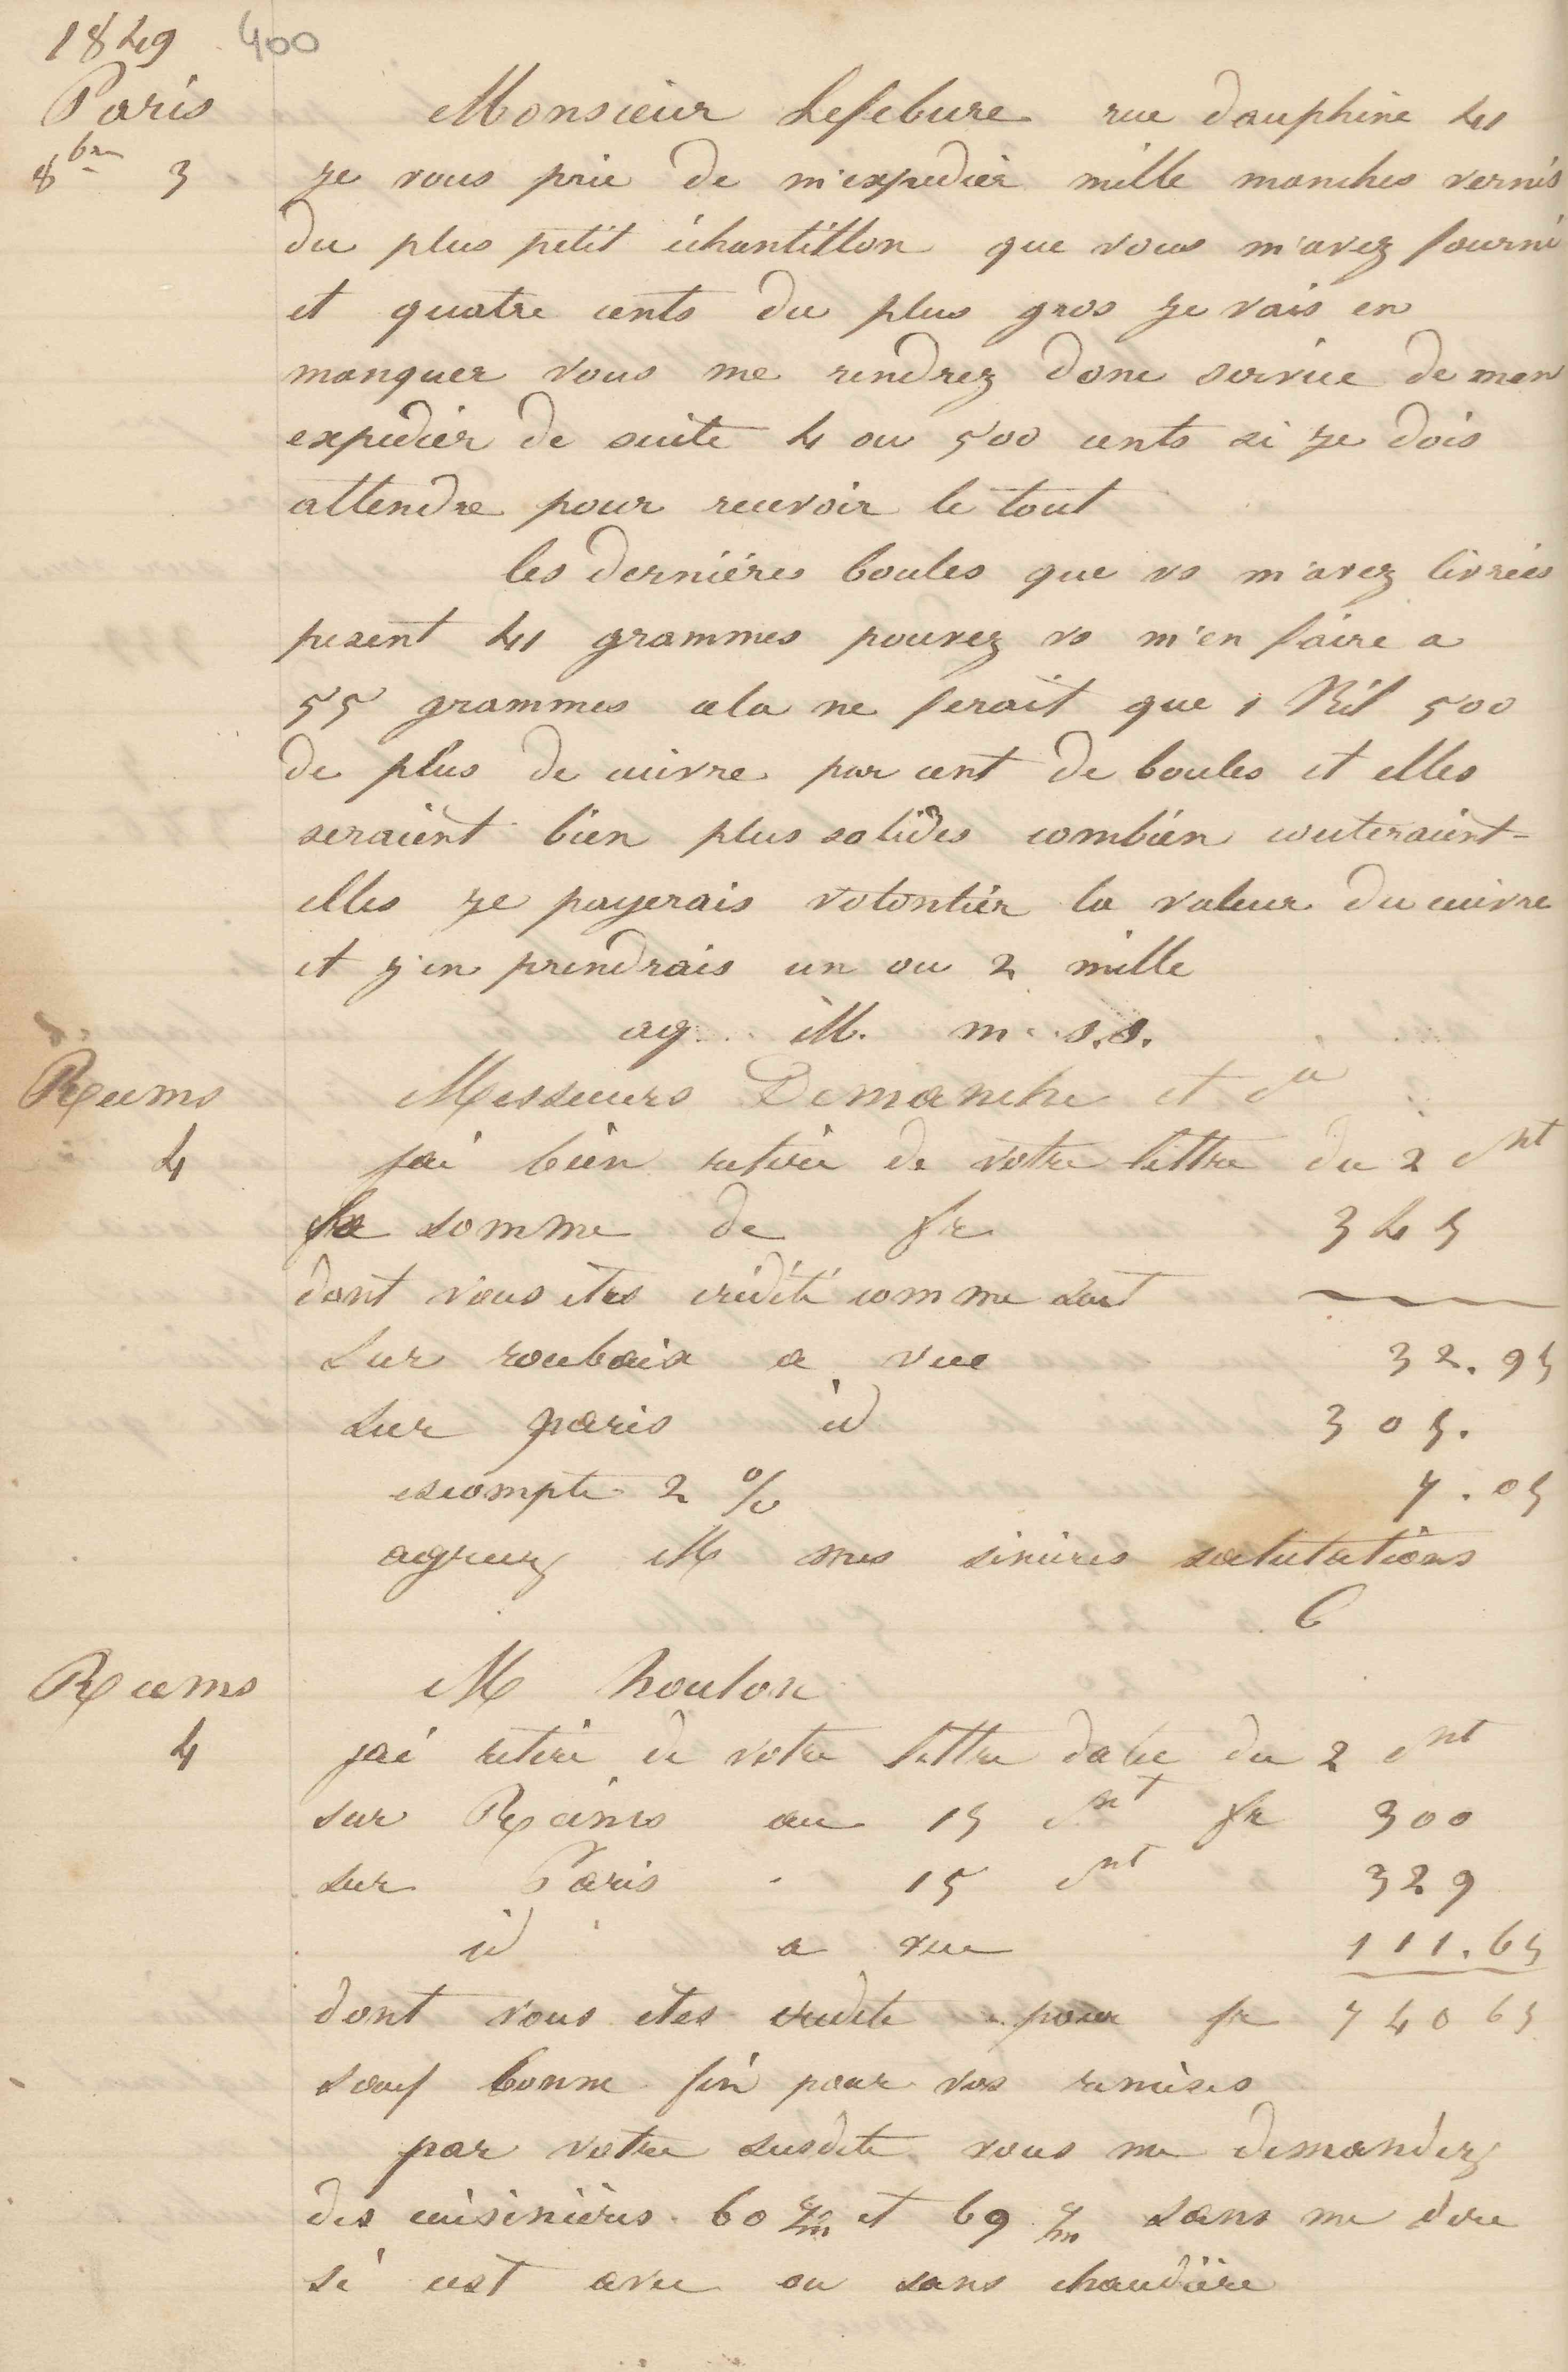 1849 400
Paris
8bre 3
Monsieur Lefebure rue dauphine 41
je vous prie de m'expedier mille manches vernis
du plus petit échantillon que vous m'avez fourni
et quatre cents du plus gros je vais en
manquer vous me rendrez donc service de men
expedier de suite 4 ou 500 cents si je dois
attendre pour recevoir le tout
les derniéres boules que vs m'avez livrées
pesent 41 grammes pouvez vs m'en faire a
55 grammes cela ne ferait que 1 Kil 500
de plus de cuivre par cent de boules et elles
seraient bien plus solides combien couteraient-
elles je payerais volontier la valeur du cuivre
et j'en prendrais un ou 2 mille
ag M. m s.s.
Reims
4
Messieurs Demanche et Cie
jai bien retiré de votre lettre du 2 Ct
la somme de fr 345
dont vous étes crédité comme suit
sur roubaix a vue 32.95
sur paris id 305.
escompte 2 % 7.05
agreez M mes sincéres salutations
G
Reims
4
M houlon
jai retiré de votre lettre datée du 2 Ct
sur Reims au 15 Ct fr 300
sur Paris - 15 Ct 329
id a vue 111.65
dont vous etes credite pour fr 740 65
sauf bonne fin pour vos remises
par votre susdite vous me demandez
des cuisinières 60 c/m et 69 c/m sans me dire
si cest avec ou sans chaudière